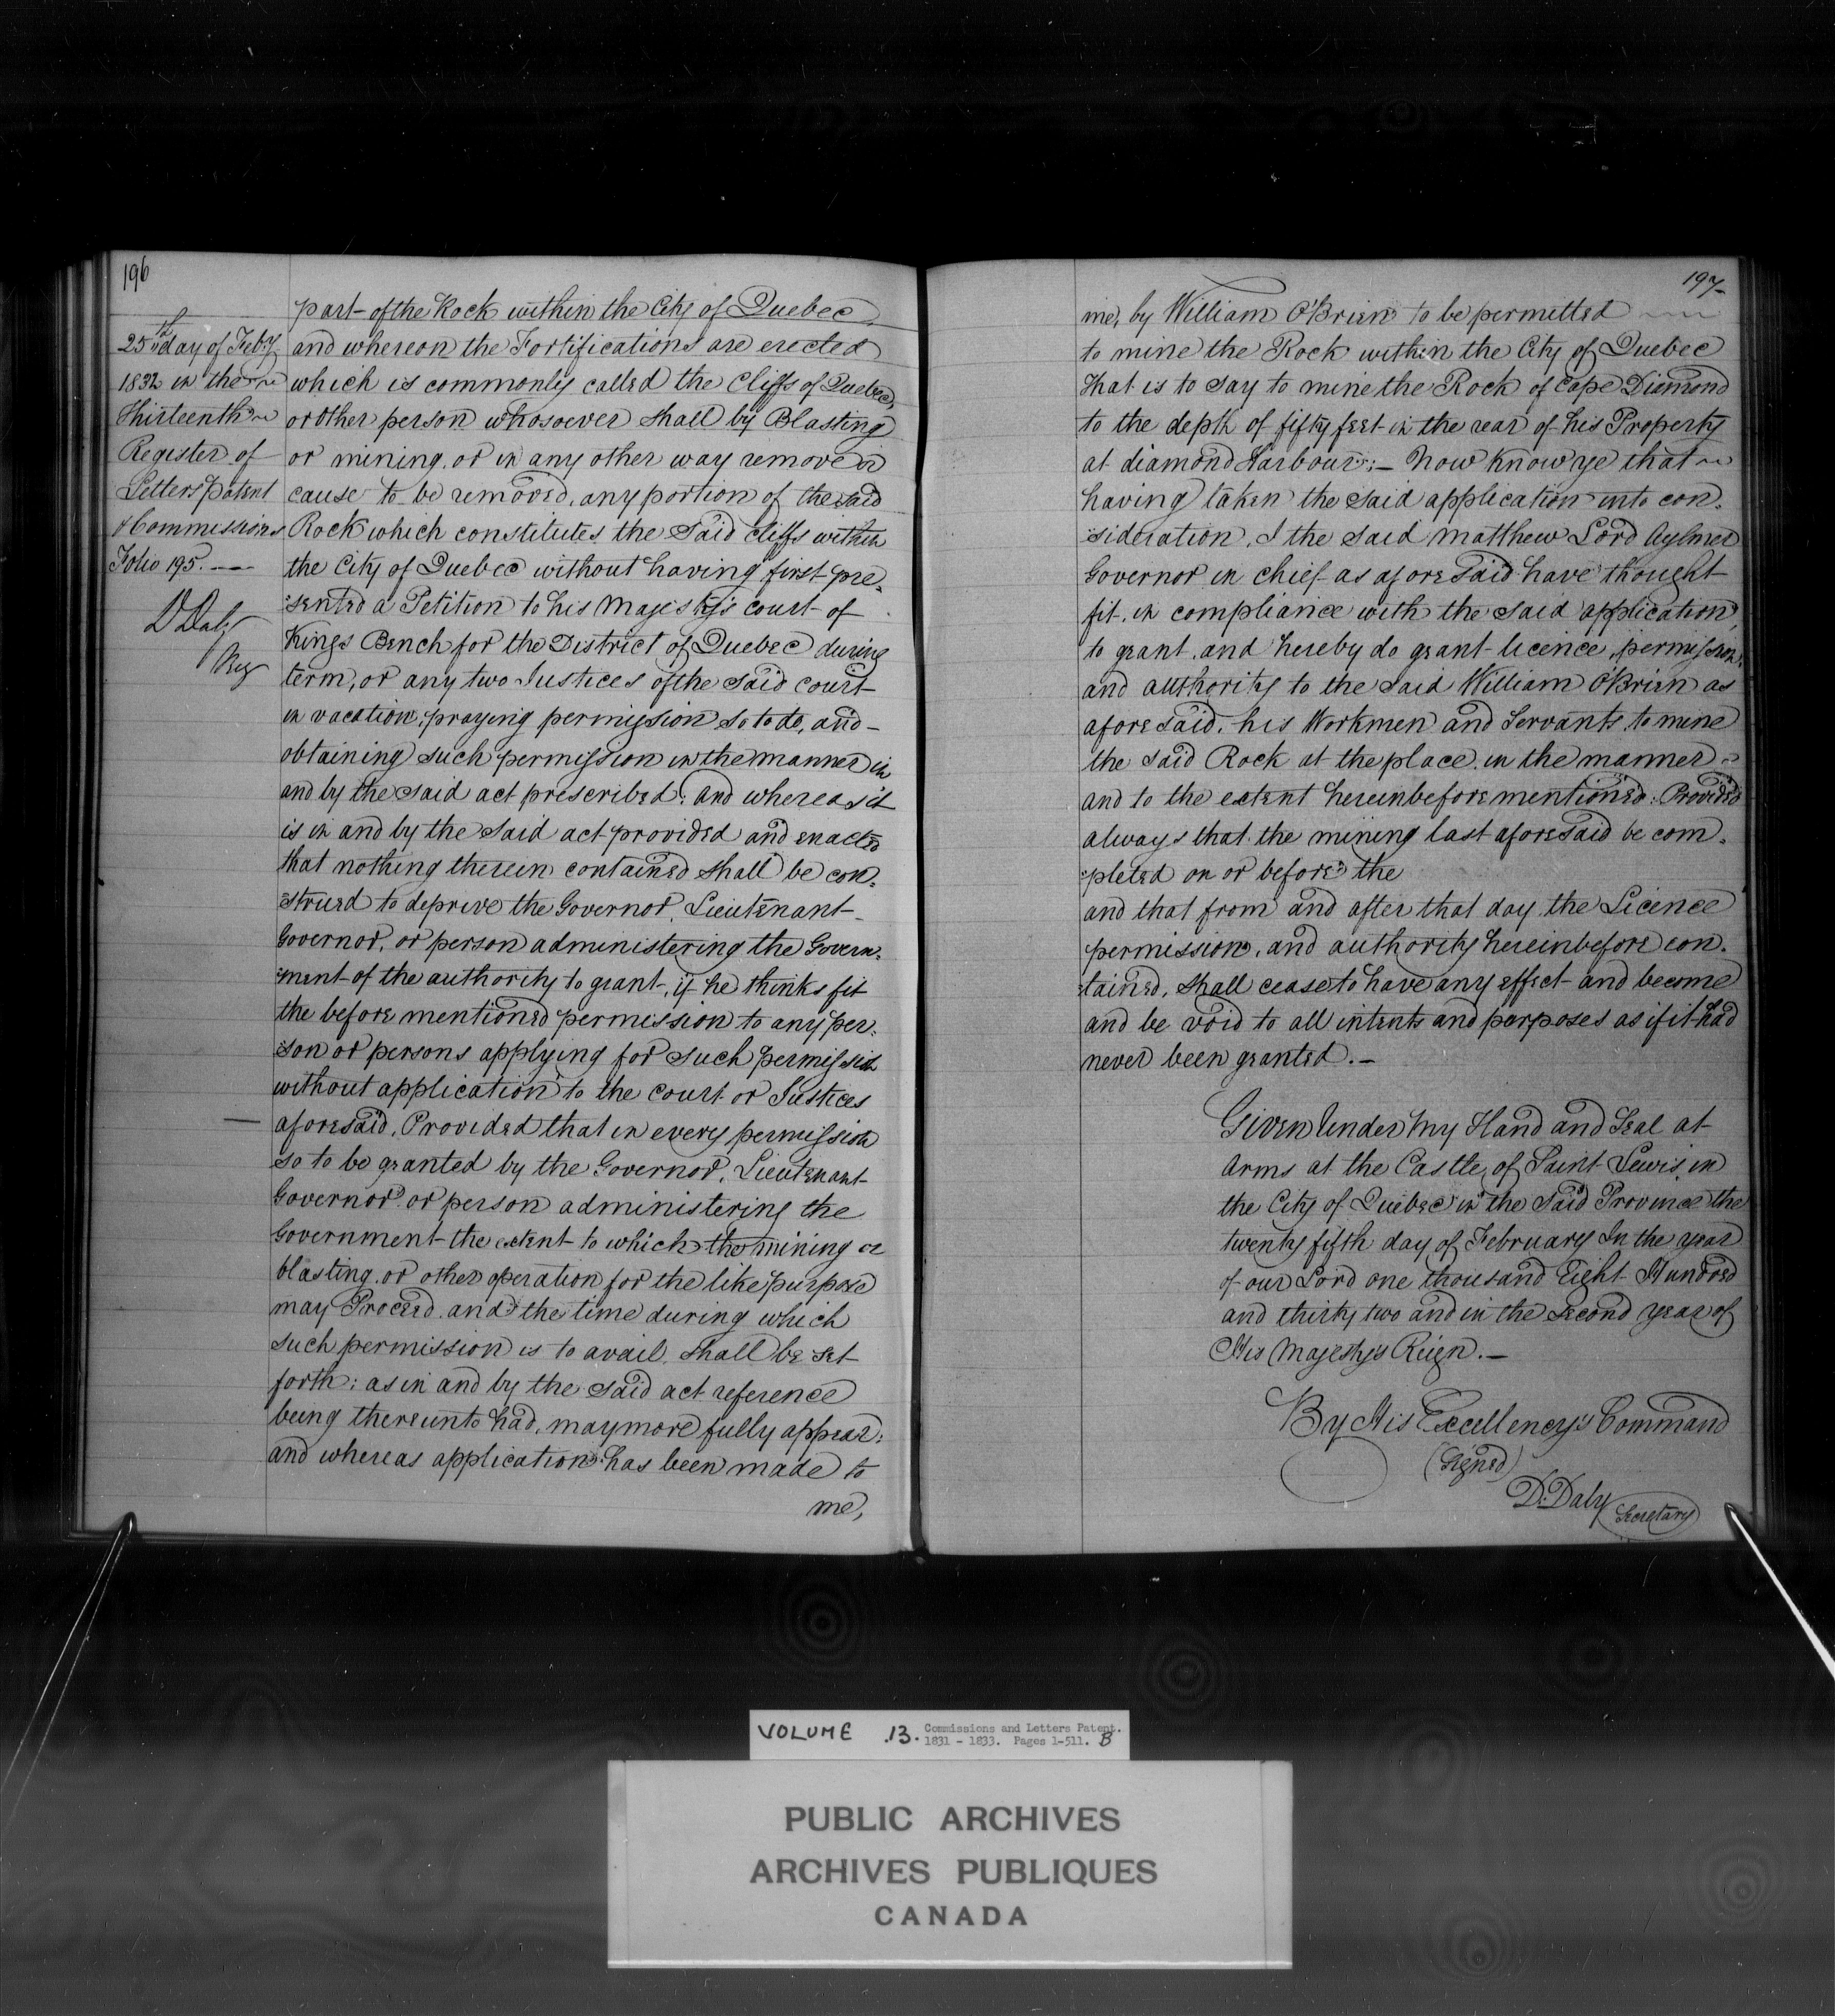 196
25th day of Feby
1832 in the
Thirteenth
Register of
Letters patent
& Commissions
Folio 195.
D Daly
Reg
part of the Rock within the City of Quebec
and whereon the Fortifications are erected
which is commonly called the Cliffs of Quebec,
or other person whosoever shall by Blasting
or mining, or in any other way remove or
cause to be removed, any portion of the said
Rock which constitutes the said cliffs within
the City of Quebec without having first pre=
=sented a Petition to his Majesty's court of
Kings Bench for the District of Quebec during
term, or any two Justices of the said court
in vacation, praying permission so to do, and
obtaining such permission in the manner in
and by the said act prescribed: And whereas it
is in and by the said act provided and enacted
that nothing therein contained shall be con=
=strued to deprive the Governor, Lieutenant
Governor, or person administering the Govern=
=ment of the authority to grant, if he thinks fit
the before mentioned permission to any per=
=son or persons applying for such permission
without application to the court or Justices
aforesaid, Provided that in every permission
so to be granted by the Governor, Lieutenant
Governor or person administering the
Government the extent to which the mining or
blasting or other operation for the like purpose
may Proceed and the time during which
such permission is to avail, shall be set
forth: as in and by the said act reference
being thereunto had, may more fully appear:
and whereas application has been made to
me,
197
me, by William O'Brien to be permitted
to mine the Rock within the City of Quebec
that is to say to mine the Rock of Cape Diamond
to the depth of fifty feet in the rear of his Property
at diamond Harbour:— Now know ye that
having taken the said application into con=
=sideration, I the said Matthew Lord Aylmer
Governor in chief as aforesaid have thought
fit, in compliance with the said application,
to grant, and hereby do grant licence, permission,
and authority to the said William O'Brien as
aforesaid, his Workmen and Servants, to mine
the said Rock at the place, in the manner
and to the extent hereinbefore mentioned: Provided
always that the mining last aforesaid be com=
=pleted on or before the
and that from and after that day the Licence
permission, and authority hereinbefore con=
=tained, shall cease to have any effect and become
and be void to all intents and purposes as if it had
never been granted.—
Given Under My Hand and Seal at
Arms at the Castle of Saint Lewis in
the City of Quebec in the said Province the
twenty fifth day of February In the year
of our Lord one thousand Eight Hundred
and thirty two and in the second year of
His Majesty's Reign.—
By His Excellency's Command
(Signed)
D. Daly
Secretary
VOLUME .13. Commissions and Letters Patent.
1831 - 1833. Pages 1-511. B
PUBLIC ARCHIVES
ARCHIVES PUBLIQUES
CANADA